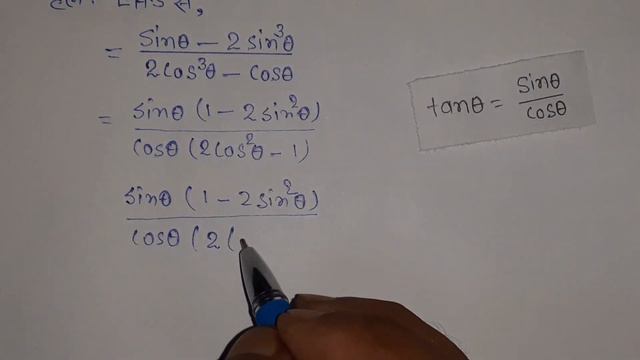 हल:- LHS से,
= sinθ – 2 sin³θ / 2cos³θ – cosθ
= sinθ (1 – 2 sin²θ) / cosθ (2cos²θ – 1)
sinθ (1 – 2 sin²θ) / cosθ (2 (
tanθ = sinθ / cosθ